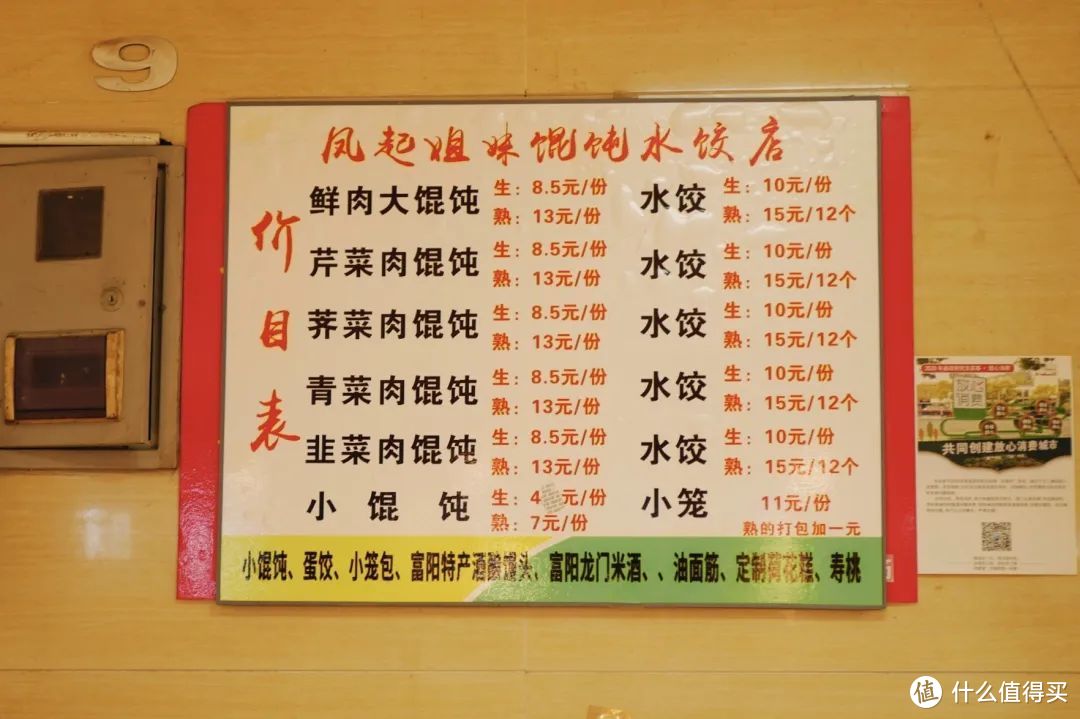 9
凤起姐妹馄饨水饺店
价目表
鲜肉大馄饨 生：8.5元/份 水饺 生：10元/份
熟：13元/份 熟：15元/12个
芹菜肉馄饨 生：8.5元/份 水饺 生：10元/份
熟：13元/份 熟：15元/12个
荠菜肉馄饨 生：8.5元/份 水饺 生：10元/份
熟：13元/份 熟：15元/12个
青菜肉馄饨 生：8.5元/份 水饺 生：10元/份
熟：13元/份 熟：15元/12个
韭菜肉馄饨 生：8.5元/份 水饺 生：10元/份
熟：13元/份 熟：15元/12个
小馄饨 生：4 元/份 小笼 11元/份
熟：7元/份 熟的打包加一元
小馄饨、蛋饺、小笼包、富阳特产酒酿馒头、富阳龙门米酒、、油面筋、定制荷花糕、寿桃
共同创建放心消费城市
值 什么值得买